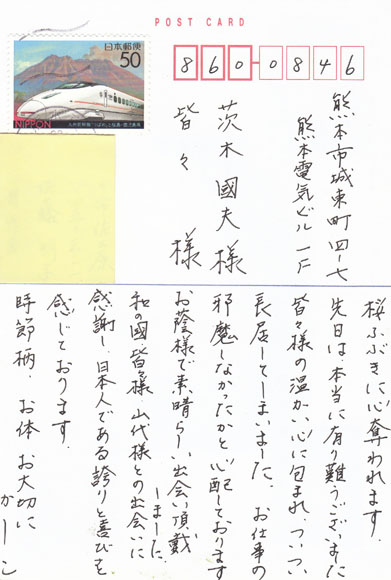 POST CARD
日本郵便
50
NIPPON
860-0846
熊本市城東町四-七
熊本電気ビル一F
茨木國夫様
皆々様
桜ふぶきに心奪われます。
先日は本当に有り難うございました
皆々様の温かい心に包まれ、ついつい
長居してしまいました。お仕事の
邪魔しなかったかと心配しております
お蔭様で素晴らしい出会い頂戴
しました。
和の國・皆々様、山代様との出会いに
感謝し、日本人である誇りと喜びを
感じております。
時節柄、お体お大切に
かしこ